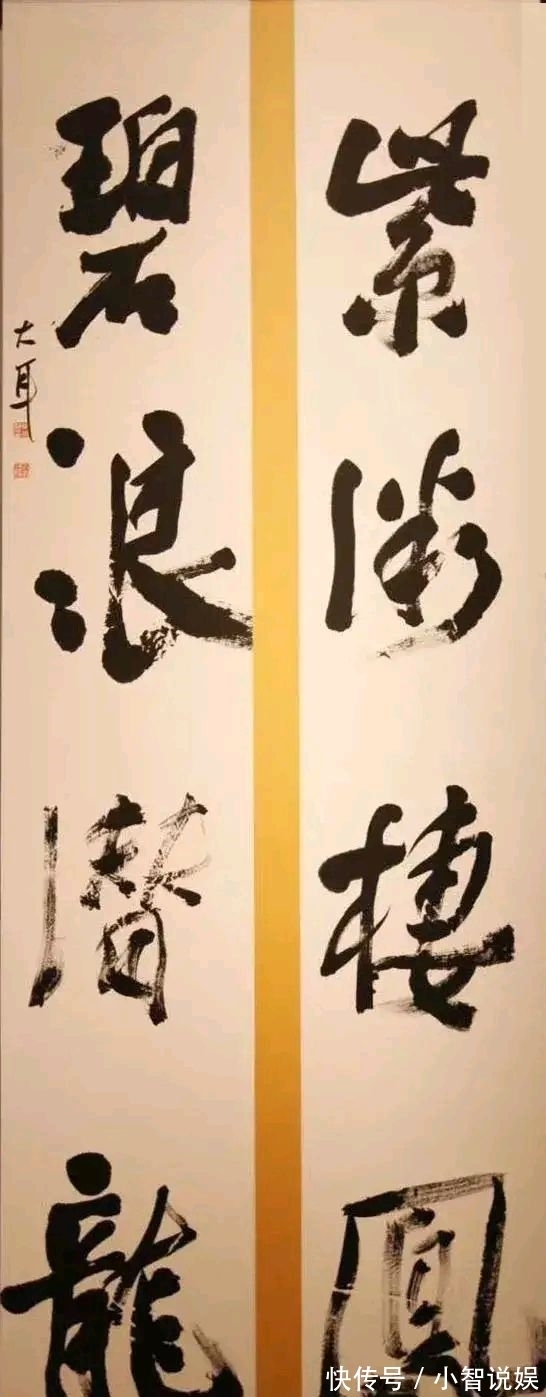 紫棲圓
碧浪潜龍
大耳
快传号 / 小智说娱